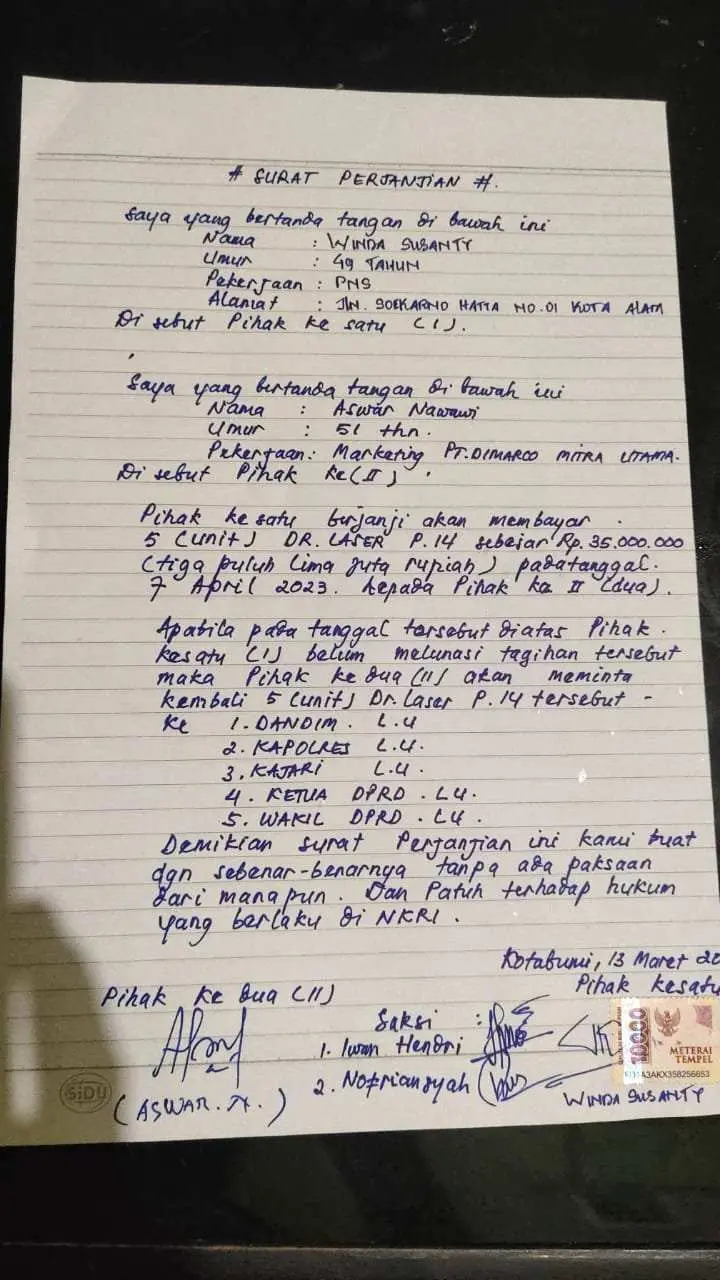 # SURAT PERJANJIAN #.
Saya yang bertanda tangan di bawah ini
Nama : WINDA SUSANTY
Umur : 49 TAHUN
Pekerjaan : PNS
Alamat : JLN. SOEKARNO HATTA NO.01 KOTA ALAM
Di sebut Pihak ke satu (I).
Saya yang bertanda tangan di bawah ini
Nama : Aswar Nawawi
Umur : 51 thn.
Pekerjaan : Marketing PT.DIMARCO MITRA UTAMA.
Di sebut Pihak ke (II)
Pihak ke satu berjanji akan membayar
5 (unit) DR. LASER P.14 sebesar Rp. 35.000.000
(tiga puluh Lima juta rupiah) pada tanggal.
7 April 2023. kepada Pihak ke II (dua).
Apabila pada tanggal tersebut diatas Pihak.
kesatu (I) belum melunasi tagihan tersebut
maka Pihak ke dua (II) akan meminta
kembali 5 (unit) Dr. Laser P.14 tersebut -
ke 1. DANDIM. L.U
2. KAPOLRES L.U.
3. KAJARI L.U.
4. KETUA DPRD. LU.
5. WAKIL DPRD. LU.
Demikian surat Perjanjian ini kami buat
dgn sebenar-benarnya tanpa ada paksaan
dari manapun. Dan Patuh terhadap hukum
yang berlaku di NKRI.
Kotabumi, 13 Maret 20
Pihak ke dua (II) Pihak kesatu
Saksi :
1. Iwan Hendri
2. Nopriansyah
10000
METERAI
TEMPEL
SiDU
(ASWAR. )
WINDA SUSANTY